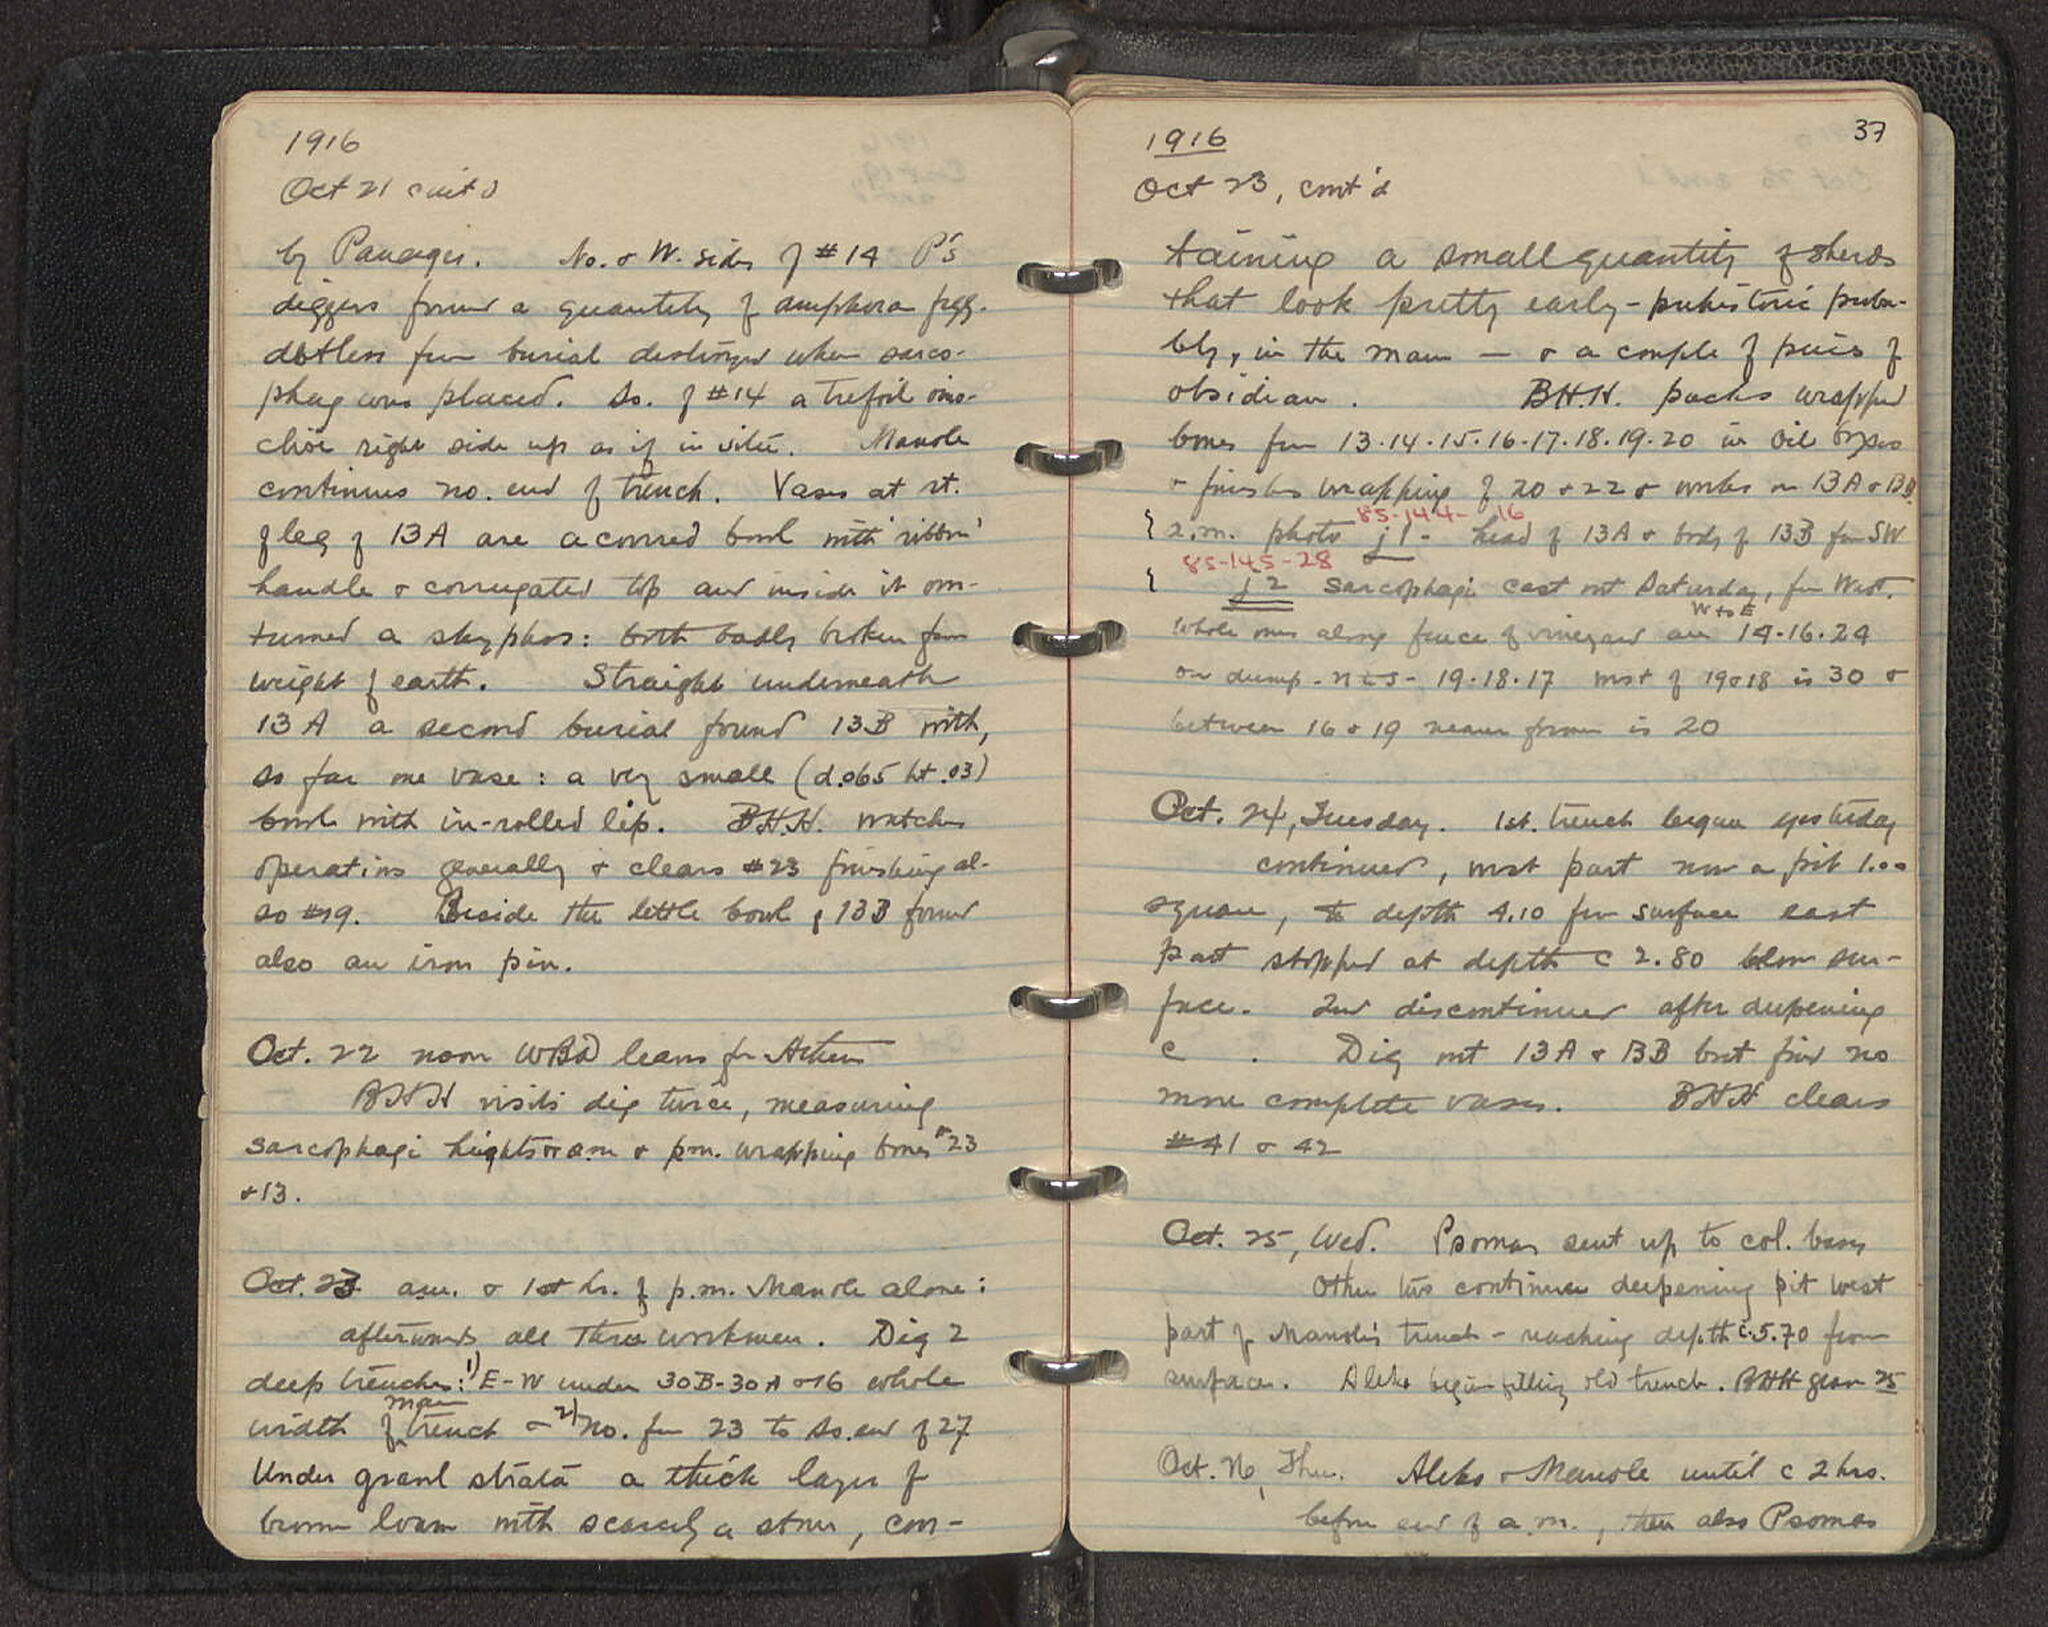 1916
Oct 21 cont'd
by Panagis. No. & W. sides of #14 P's
diggers found a quantity of amphora fgg.
dbtless fm burial destroyed when sarco-
phag was placed. So. of #14 a trefoil oino-
choe right side up as if in situ. Manole
continues no. end of trench. Vases at rt.
of leg of 13A are a coursed bowl with 'ribbon'
handle & corrugated top and inside it om-
turned a skyphos: both badly broken from
weight of earth. Straight underneath
13A a second burial found 13B with,
so far one vase: a very small (d. .065 ht .03)
bowl with in-rolled lip. B.H.H. watches
operations generally & clears #23 finishing al-
so #19. Beside the little bowl, 13B found
also an iron pin.
Oct. 22 noon WBD leaves for Athens
BHH visits dig twice, measuring
sarcophagi heights a.m & p.m. wrapping bones 23
& 13.
Oct. 23 a.m. & 1st hr. of p.m. Manole alone:
afterwards all three workmen. Dig 2
deep trenches: 1) E-W under 30B-30A & 16 whole
width of main trench & 2) No. fm 23 to So. end of 27
Under gravel strata a thick layer of
brown loam with scarcely a stone, con-
37
1916
Oct 23, cont'd
taining a small quantity of sherds
that look pretty early - prehistoric proba-
bly, in the main — & a couple of pieces of
obsidian. B.H.H. packs wrapped
bones fm 13.14.15.16.17.18.19.20 in oil boxes
& finishes wrapping of 20 & 22 & works on 13A & 13B
85-144-16
2.m. photo j1 - head of 13A & body of 13B fm SW
85-145-28
j2 sarcophagi cast out Saturday, fm West.
W to E
whole ones along fence of vineyard are 14.16.24
on dump - N to S - 19.18.17 west of 19 & 18 is 30 &
between 16 & 19 nearer former is 20
Oct. 24, Tuesday. 1st. trench begun yesterday
continued, west part now a pit 1.00
square, to depth 4.10 fm surface east
part stopped at depth c 2.80 below sur-
face. 2nd discontinued after deepening
c . Dig out 13A & 13B but find no
more complete vases. BHH clears
#41 & 42
Oct. 25, Wed. Psomas sent up to col. bases
Other two continue deepening pit west
part of Manoli's trench - reaching depth c. 5.70 from
surface. Aleko begins filling old trench. BHH 25
Oct. 26, Thu. Aleko & Manole until c 2 hrs.
before end of a.m., then also Psomas